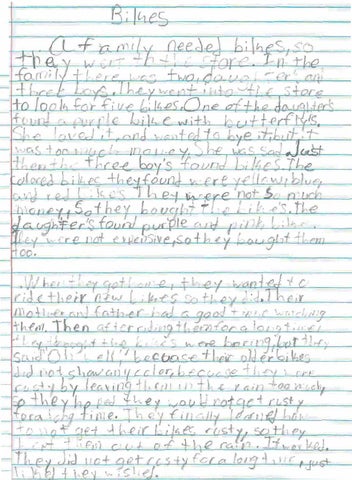 Bikes
A family needed bikes, so
they went to the store. In the
family there was two, daughter's, and
three boys. They went into the store
to look for five bikes. One of the daughter's
found a purple bike with butterflys,
She loved it, and wanted to bye it, but it
was too much money. She was sad. Just
then the three boy's found bikes. The
colored bikes they found were yellow, blue,
and red bikes. They were not so much
money, So they bought the bikes. The
daughter's found purple and pink bike.
They were not expensive, so they bought them
too.
When they got home, they wanted to
ride their new bikes so they did. Their
mother and father had a good time watching
them. Then after riding them for a long time
they thought the bikes were boring, but they
said "Oh well," because their older bikes
did not show any color, because they were
rusty by leaving them in the rain too much,
so they hoped they would not get rusty
for a long time. They finally learned how
to not get their bikes rusty, so they
kept them out of the rain. It worked.
They did not get rusty for a long time, just
liked they wished.